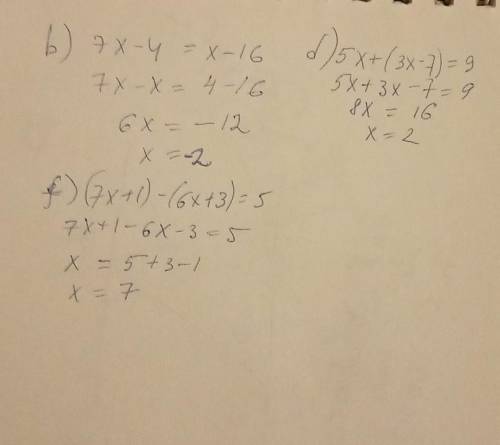 b) 7x-4 = x-16
7x-x = 4-16
6x = -12
x = -2
d) 5x+(3x-7)=9
5x+3x-7=9
8x = 16
x = 2
f) (7x+1)-(6x+3)=5
7x+1-6x-3=5
x = 5+3-1
x = 7